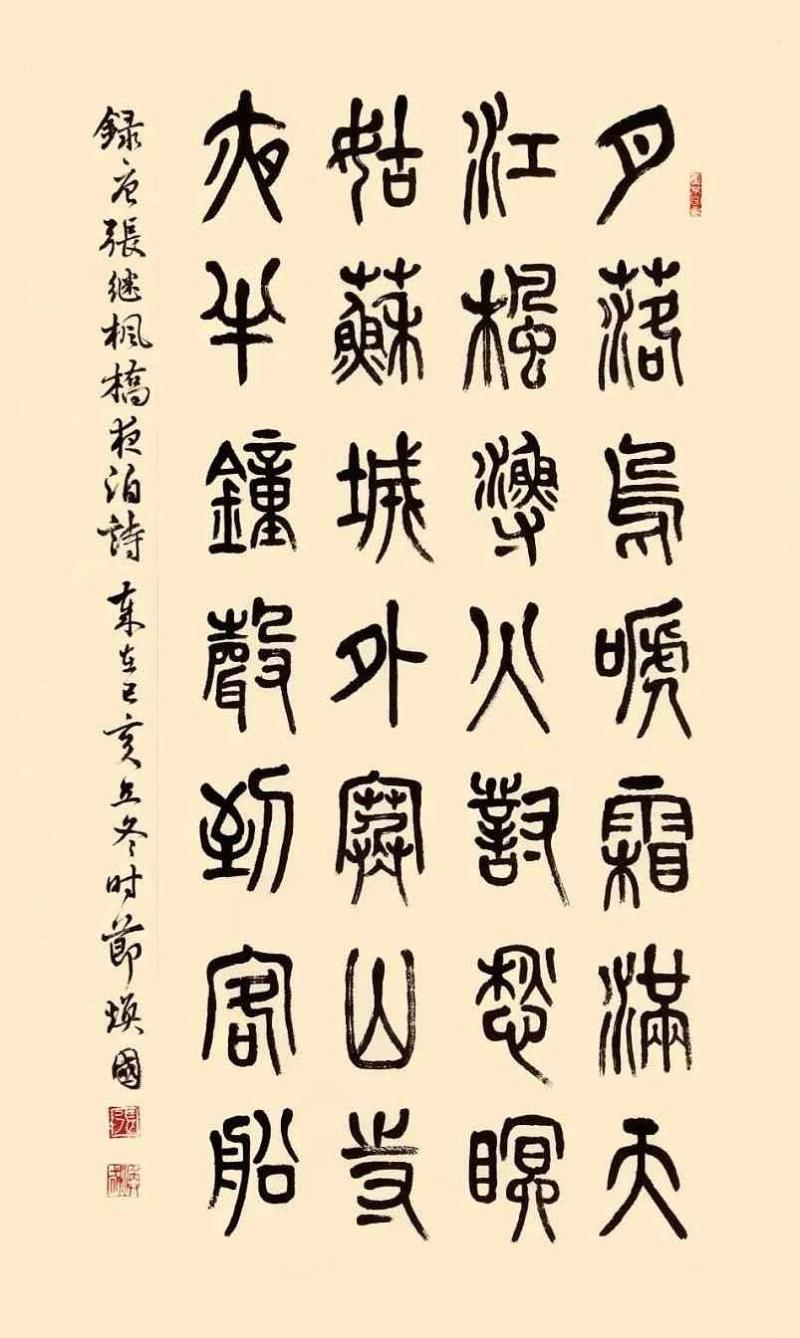 月落烏嗁霜滿天
江楓漁火對愁瞑
姑蘇城外寒山寺
夜半鐘聲到客船
録唐張继枫橋夜泊詩 歲在己亥立冬时節焕國